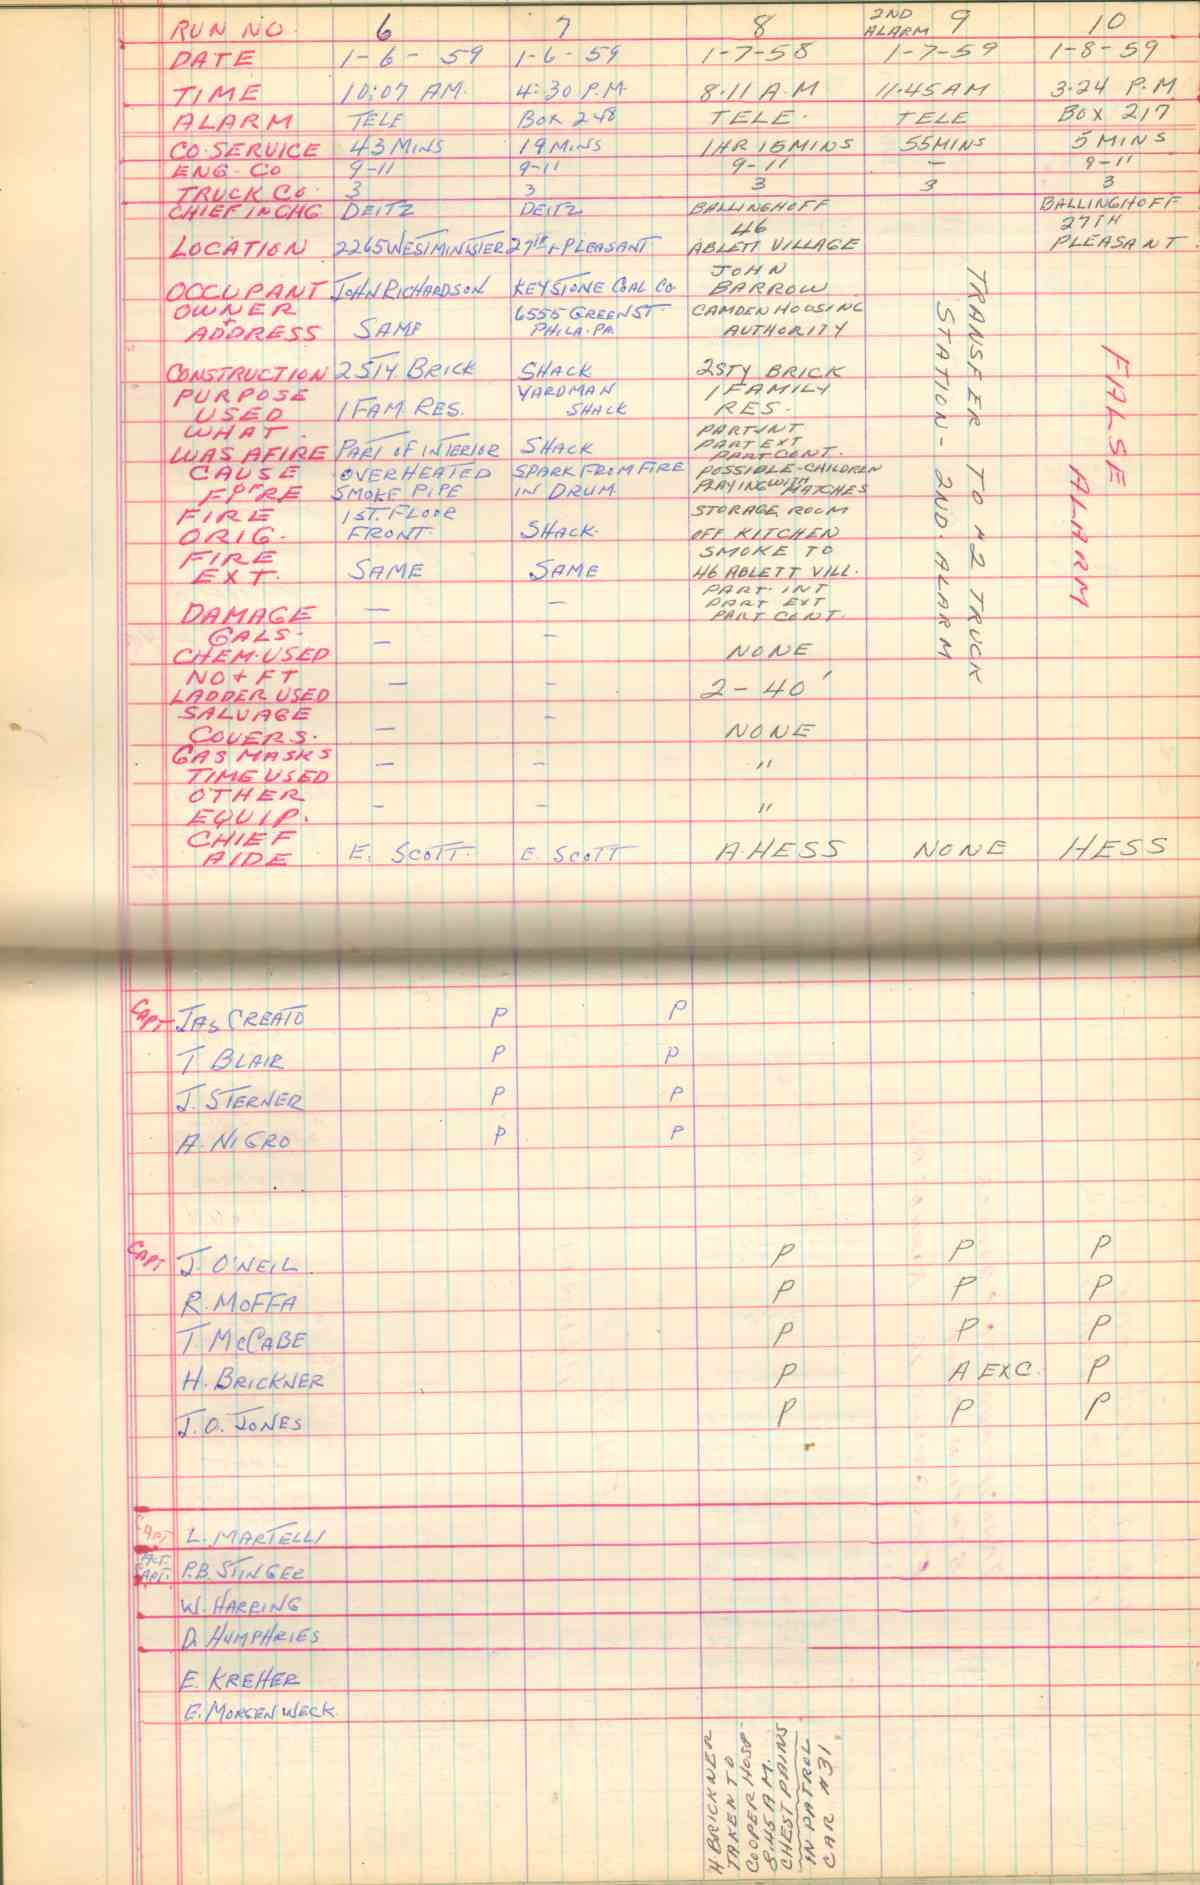 RUN NO. 6 7 8 2ND ALARM 9 10
DATE 1-6-59 1-6-59 1-7-58 1-7-59 1-8-59
TIME 10:07 AM. 4:30 P.M. 8·11 A.M 11·45 AM 3·24 P.M
ALARM TELE BOX 248 TELE. TELE BOX 217
CO·SERVICE 43 MINS 19 MINS 1HR 15MINS 55MINS 5 MINS
ENG·CO 9-11 9-11 9-11 — 9-11
TRUCK CO· 3 3 3 3 3
CHIEF IN CHG DEITZ DEITZ BALLINGHOFF BALLINGHOFF
LOCATION 2265 WESTMINISTER 27TH + PLEASANT 46 ABLETT VILLAGE 27TH PLEASANT
OCCUPANT JOHN RICHARDSON KEYSTONE COAL CO JOHN BARROW
OWNER + ADDRESS SAME 6555 GREEN ST. PHILA. PA. CAMDEN HOUSING AUTHORITY
CONSTRUCTION 2 STY BRICK SHACK 2STY BRICK
PURPOSE USED 1 FAM RES. YARDMAN SHACK 1 FAMILY RES.
WHAT WAS AFIRE PART OF INTERIOR SHACK PART INT PART EXT PART CONT.
CAUSE OF FIRE OVERHEATED SMOKE PIPE SPARK FROM FIRE IN DRUM POSSIBLE-CHILDREN PLAYING WITH MATCHES
FIRE ORIG. 1ST. FLOOR FRONT. SHACK. STORAGE ROOM OFF KITCHEN
FIRE EXT. SAME SAME SMOKE TO 46 ABLETT VILL.
DAMAGE — — PART. INT PART EXT PART CONT.
GALS. CHEM. USED — — NONE
NO + FT LADDER USED — — 2-40'
SALVAGE COVERS. — — NONE
GAS MASKS TIME USED — — "
OTHER EQUIP. — — "
CHIEF AIDE E. SCOTT. E. SCOTT A HESS NONE HESS
TRANSFER TO #2 TRUCK
STATION- 2ND. ALARM
FALSE
ALARM
CAPT JAS CREATO P P
T. BLAIR P P
J. STERNER P P
A. NIGRO P P
CAPT J. O'NEIL P P P
R. MOFFA P P P
T MCCABE P P P
H. BRICKNER P A EXC. P
J. O. JONES P P P
CAPT L. MARTELLI
ACT. CAPT. P.B. STINGER
W. HARRING
D. HUMPHRIES
E. KREHER
E. MORGENWECK
H. BRICKNER
TAKEN TO
COOPER HOSP.
8:45 A M.
CHEST PAINS
IN PATROL
CAR #31.